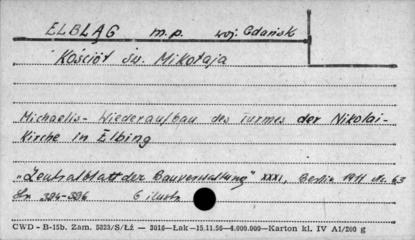 ELBLĄG m.p. woj. Gdańsk
Kościół św. Mikołaja
Michaelis- Wiederaufbau des Turmes der Nikolai-
kirche in Elbing
„Zentralblatt der Bauverwaltung" XXXI, Berlin 1911 Nr. 63
Str. 394-396 6 ilustr.
CWD - B-15b. Zam. 5823/S/Łż — 3016—Łak—15.11.56—4.000.000—Karton kl. IV A1/200 g